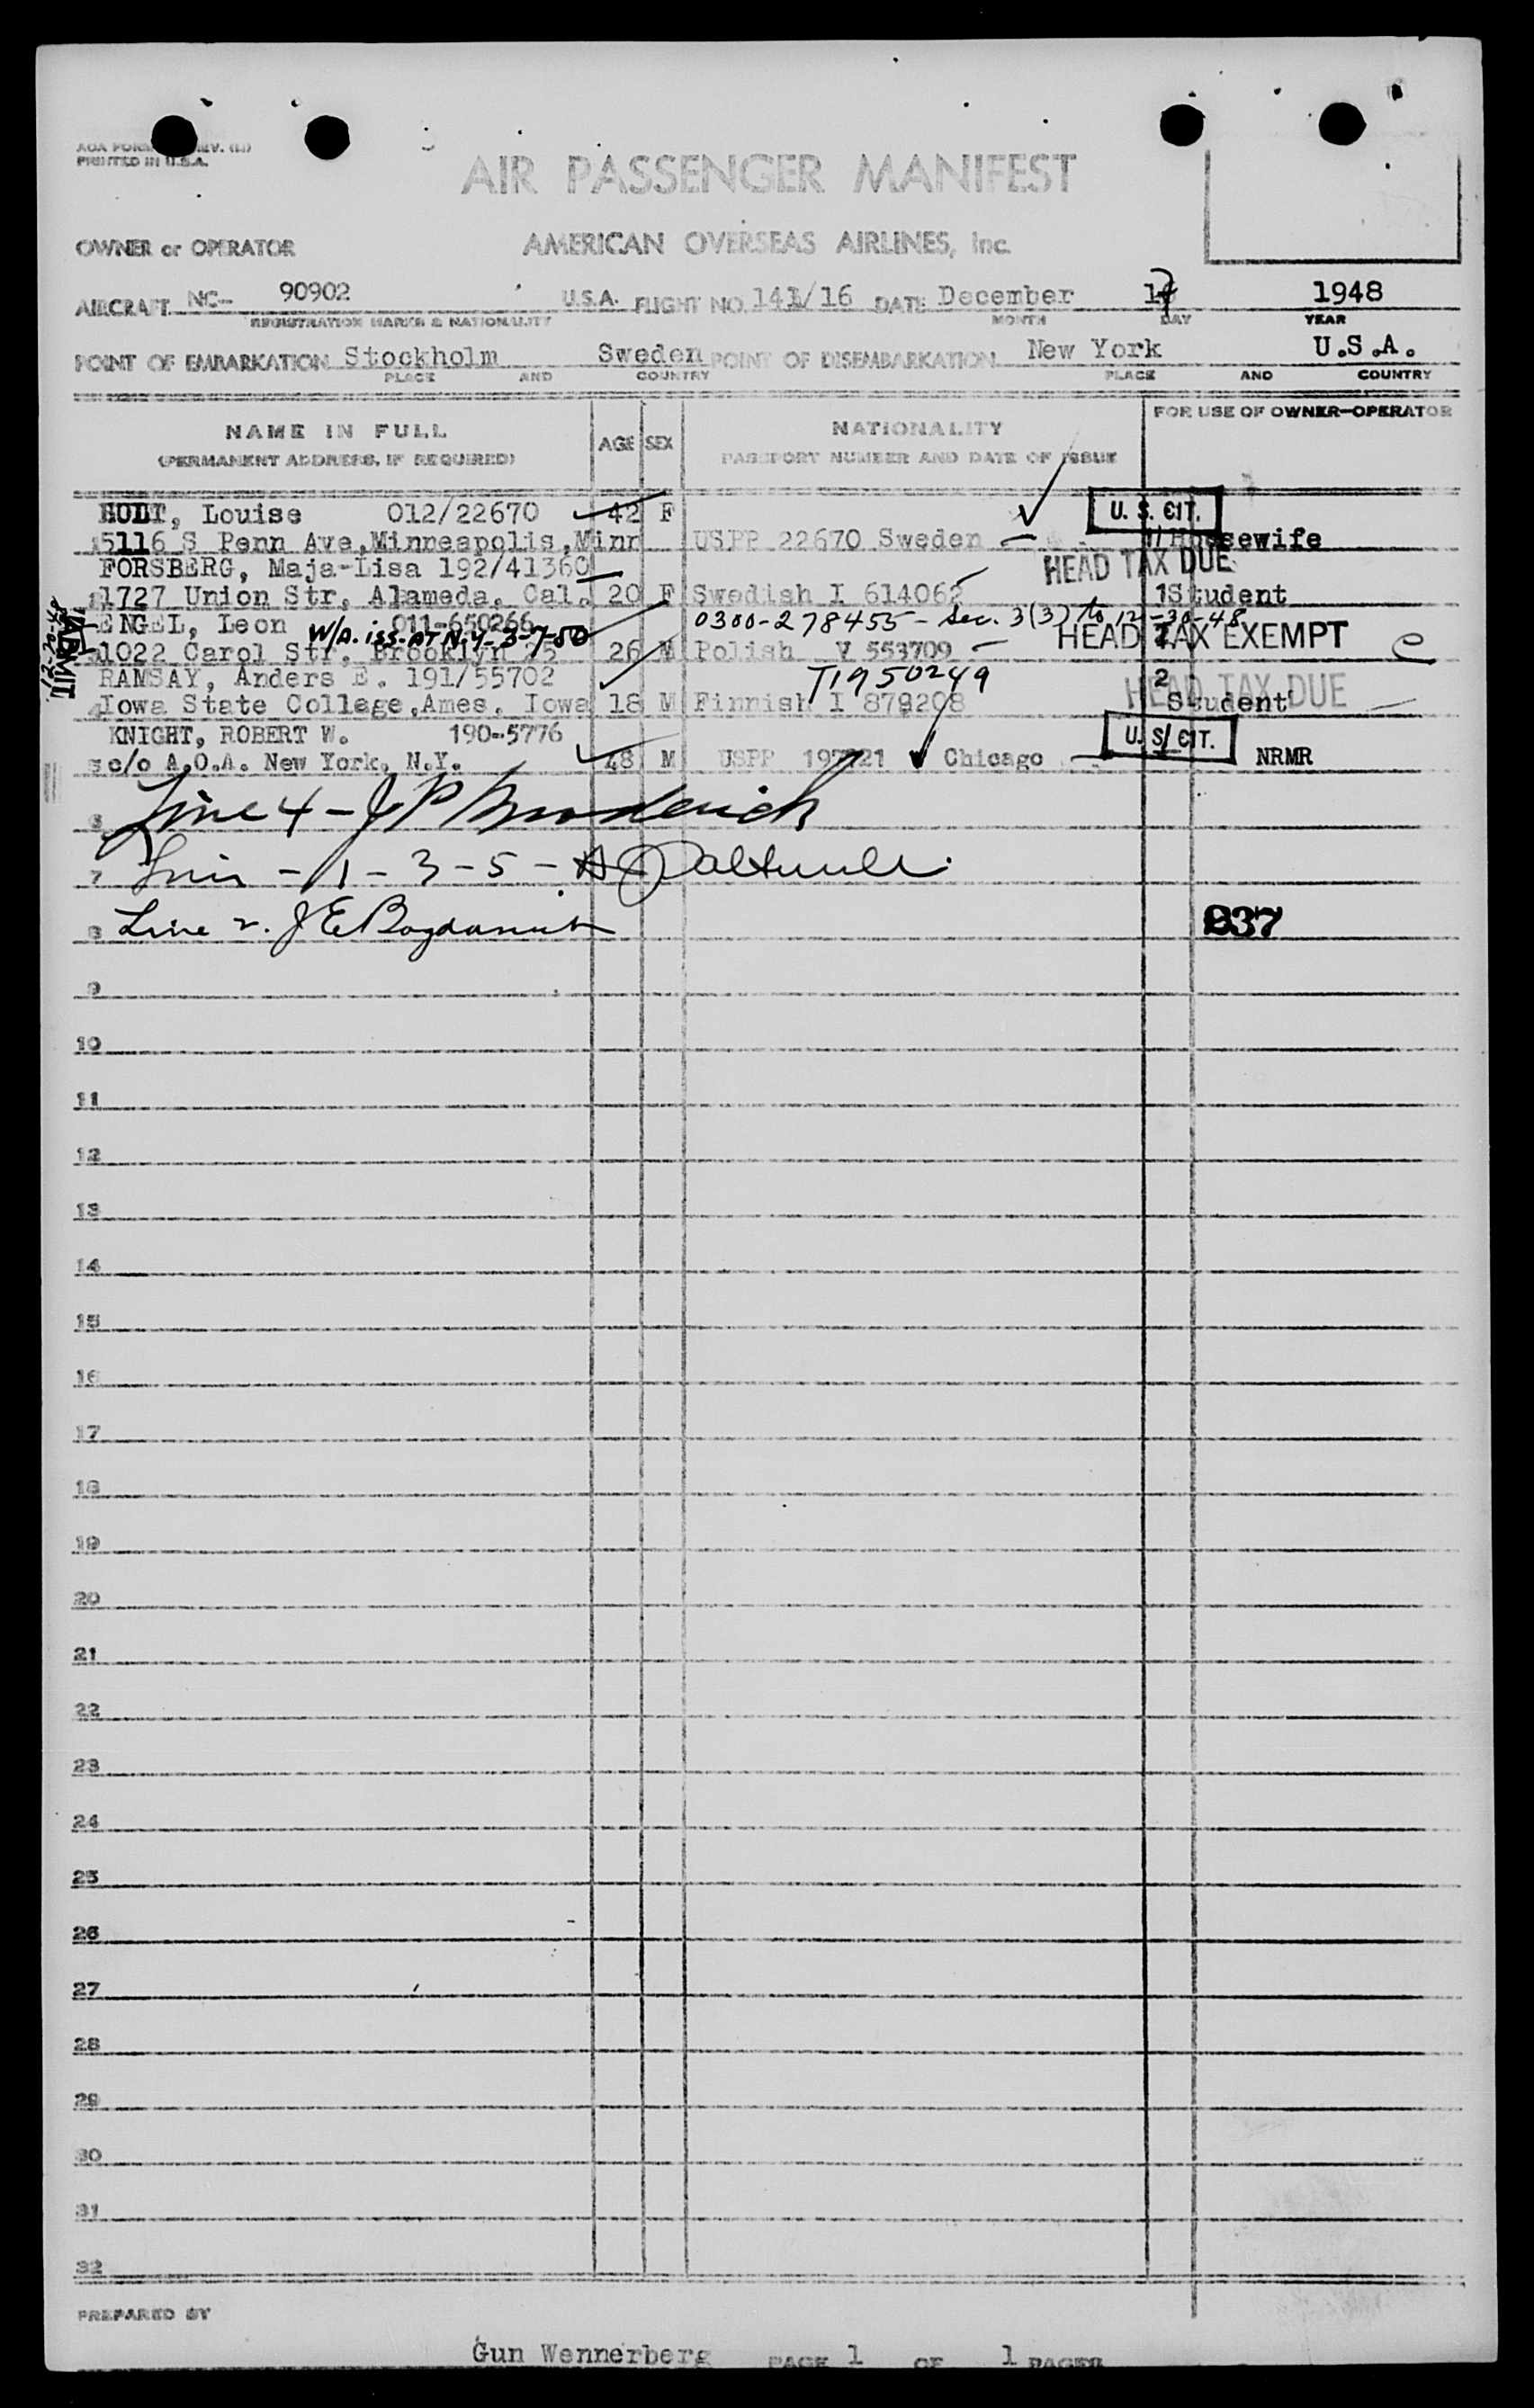 AOA FORM REV. 
PRINTED IN U.S.A.
AIR PASSENGER MANIFEST
OWNER or OPERATOR AMERICAN OVERSEAS AIRLINES, Inc.
AIRCRAFT NC- 90902 U.S.A. FLIGHT NO. 141/16 DATE December 17 1948
REGISTRATION MARKS & NATIONALITY MONTH DAY YEAR
POINT OF EMBARKATION Stockholm Sweden POINT OF DISEMBARKATION New York U.S.A.
PLACE AND COUNTRY PLACE AND COUNTRY
NAME IN FULL AGE SEX NATIONALITY FOR USE OF OWNER-OPERATOR
(PERMANENT ADDRESS, IF REQUIRED) PASSPORT NUMBER AND DATE OF ISSUE
Louise 012/22670 42 F U. S. CIT.
5116 S Penn Ave, Minneapolis, Minn USPP 22670 Sweden Housewife
FORSBERG, Maja-Lisa 192/41360 HEAD TAX DUE
1727 Union Str, Alameda, Cal. 20 F Swedish I 614062 1 Student
ENGEL, Leon 011-650266 0300-278455 - Sec. 3(3) to 12-30-48
W/A. iss. AT N.Y. 3-7-50 HEAD TAX EXEMPT
1022 Carol Str, Brooklyn 25 26 M Polish V 553709
RAMSAY, Anders E. 191/55702 T1950249 2
4 Iowa State College, Ames, Iowa 18 M Finnish I 879208 Student HEAD TAX DUE
KNIGHT, ROBERT W. 190-5776 U. S. CIT.
5 c/o A.O.A. New York, N.Y. 48 M USPP Chicago NRMR
ADMIT
12-20-48
6 Line 4 - J P Broderick
7 Lines - 1 - 3 - 5 -
8 Line 2. J E 937
9
10
11
12
13
14
15
16
17
18
19
20
21
22
23
24
25
26
27
28
29
30
31
32
PREPARED BY
Gun Wennerberg PAGE 1 OF 1 PAGES